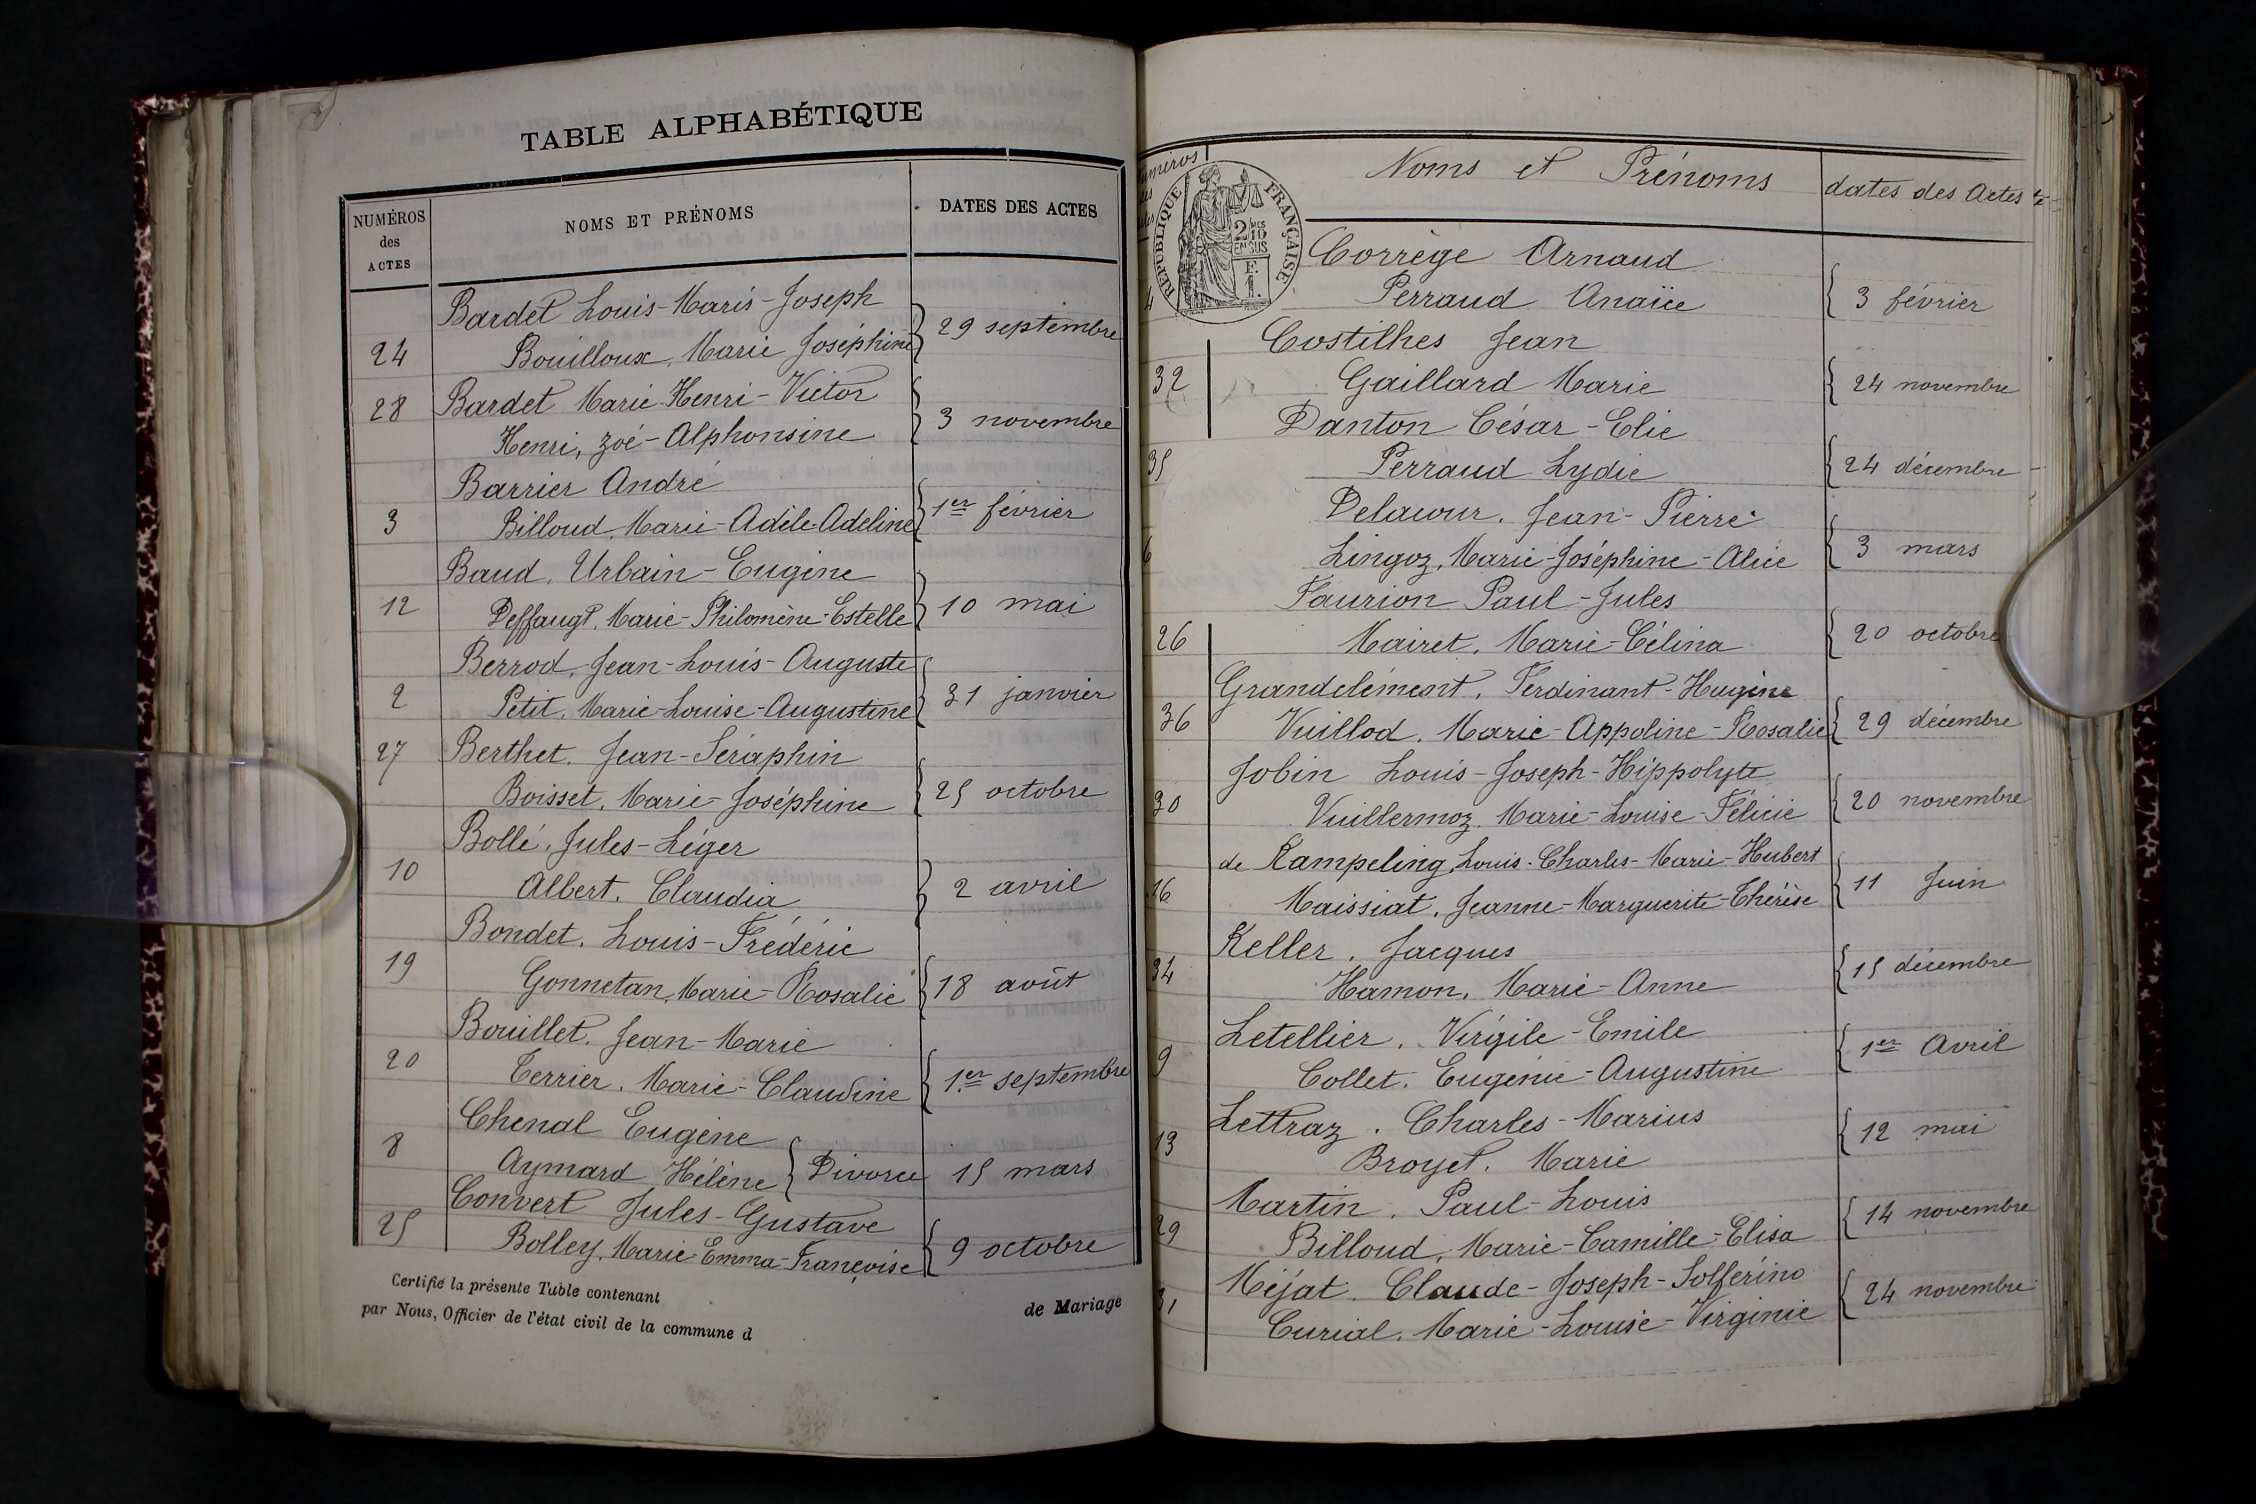 TABLE ALPHABÉTIQUE
NUMÉROS des ACTES
NOMS ET PRÉNOMS
DATES DES ACTES
Bardet Louis-Marie-Joseph
24 Bouilloux, Marie Joséphine } 29 septembre
28 Bardet Marie Henri-Victor
Henri, Zoé-Alphonsine { 3 novembre
Barrier André
3 Billoud, Marie-Adèle-Adeline } 1er février
Baud, Urbain-Eugène
12 Deffaugt, Marie-Philomène-Estelle } 10 mai
Berrod, Jean-Louis-Auguste
2 Petit, Marie-Louise-Augustine { 31 janvier
27 Berthet, Jean-Séraphin
Boisset, Marie-Joséphine { 25 octobre
Bollé, Jules-Léger
10 Albert, Claudia } 2 avril
Bondet, Louis-Frédéric
19 Gonnetan, Marie-Rosalie { 18 août
Bouillet, Jean-Marie
20 Terrier, Marie-Claudine { 1er septembre
Chenal Eugène
8 Aymard Hélène { Divorce 15 mars
Convert Jules-Gustave
25 Bolley, Marie-Emma-Françoise { 9 octobre
Certifié la présente Table contenant de Mariage
par Nous, Officier de l'état civil de la commune d
Numéros des Actes
Noms et Prénoms
dates des Actes
RÉPUBLIQUE FRANÇAISE
2 DES 10 EN SUS
F. 1.
Corrège Arnaud
4 Perraud Anaïce { 3 février
Costilhes Jean
32 Gaillard Marie { 24 novembre
Danton César-Elie
35 Perraud Lydie { 24 décembre
Delacour, Jean-Pierre
6 Lingoz, Marie-Joséphine-Alice { 3 mars
Faurion Paul-Jules
26 Mairet, Marie-Célina { 20 octobre
Grandclément, Ferdinant-Hugène
36 Vuillod, Marie-Appoline-Rosalie { 29 décembre
Jobin Louis-Joseph-Hippolyte
30 Vuillermoz, Marie-Louise-Félicie { 20 novembre
de Kampeling, Louis-Charles-Marie-Hubert
16 Maissiat, Jeanne-Marguerite-Thérèse { 11 Juin
Keller, Jacques
34 Hamon, Marie-Anne { 15 décembre
Letellier, Virgile-Emile
9 Collet, Eugénie-Augustine { 1er Avril
Lettraz, Charles-Marius
13 Broyet, Marie { 12 mai
Martin, Paul-Louis
29 Billoud, Marie-Camille-Elisa { 14 novembre
Méjat, Claude-Joseph-Solférino
31 Curial, Marie-Louise-Virginie { 24 novembre